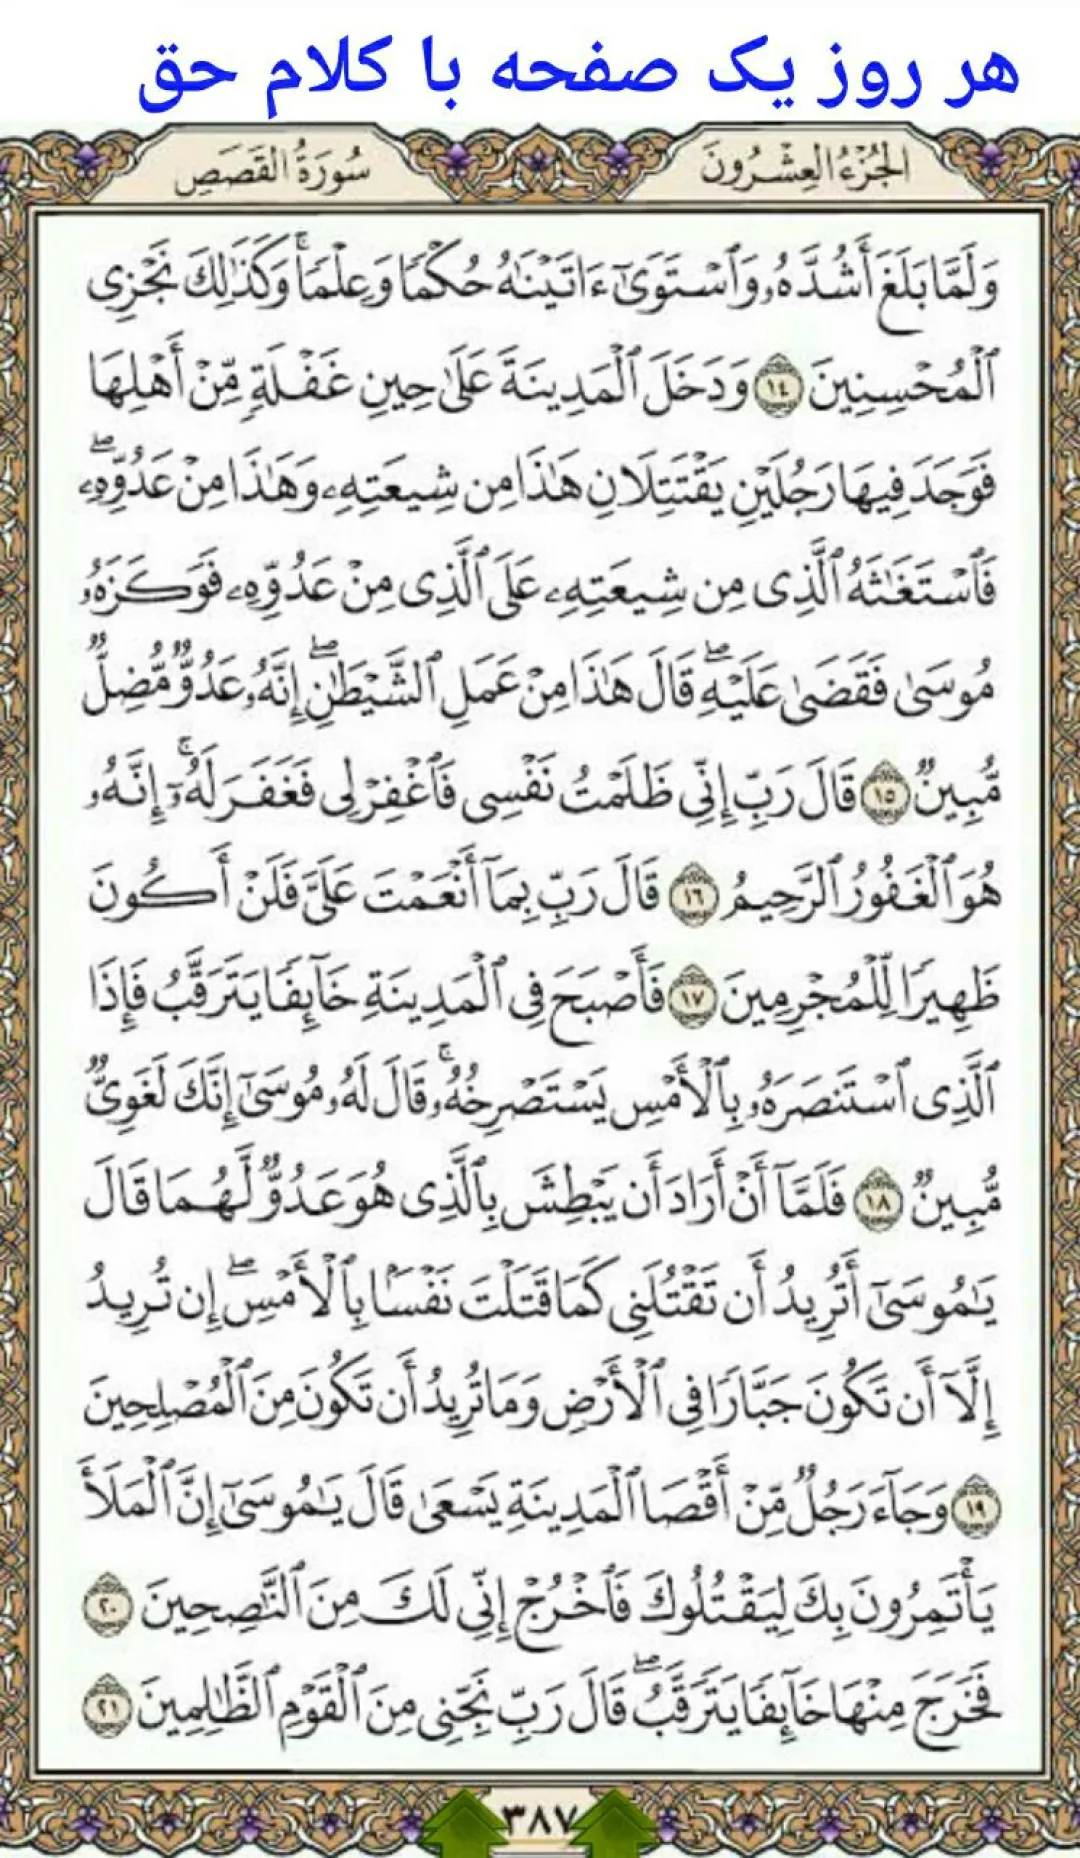 هر روز یک صفحه با کلام حق
الجُزْءُ العِشْرُونَ
سُورَةُ القَصَصِ
وَلَمَّا بَلَغَ أَشُدَّهُۥ وَٱسْتَوَىٰٓ ءَاتَيْنَٰهُ حُكْمًا وَعِلْمًا ۚ وَكَذَٰلِكَ نَجْزِى
ٱلْمُحْسِنِينَ ١٤ وَدَخَلَ ٱلْمَدِينَةَ عَلَىٰ حِينِ غَفْلَةٍ مِّنْ أَهْلِهَا
فَوَجَدَ فِيهَا رَجُلَيْنِ يَقْتَتِلَانِ هَٰذَا مِن شِيعَتِهِۦ وَهَٰذَا مِنْ عَدُوِّهِۦ ۖ
فَٱسْتَغَٰثَهُ ٱلَّذِى مِن شِيعَتِهِۦ عَلَى ٱلَّذِى مِنْ عَدُوِّهِۦ فَوَكَزَهُۥ
مُوسَىٰ فَقَضَىٰ عَلَيْهِ ۖ قَالَ هَٰذَا مِنْ عَمَلِ ٱلشَّيْطَٰنِ ۖ إِنَّهُۥ عَدُوٌّ مُّضِلٌّ
مُّبِينٌ ١٥ قَالَ رَبِّ إِنِّى ظَلَمْتُ نَفْسِى فَٱغْفِرْ لِى فَغَفَرَ لَهُۥٓ ۚ إِنَّهُۥ
هُوَ ٱلْغَفُورُ ٱلرَّحِيمُ ١٦ قَالَ رَبِّ بِمَآ أَنْعَمْتَ عَلَىَّ فَلَنْ أَكُونَ
ظَهِيرًا لِّلْمُجْرِمِينَ ١٧ فَأَصْبَحَ فِى ٱلْمَدِينَةِ خَآئِفًا يَتَرَقَّبُ فَإِذَا
ٱلَّذِى ٱسْتَنصَرَهُۥ بِٱلْأَمْسِ يَسْتَصْرِخُهُۥ ۚ قَالَ لَهُۥ مُوسَىٰٓ إِنَّكَ لَغَوِىٌّ
مُّبِينٌ ١٨ فَلَمَّآ أَنْ أَرَادَ أَن يَبْطِشَ بِٱلَّذِى هُوَ عَدُوٌّ لَّهُمَا قَالَ
يَٰمُوسَىٰٓ أَتُرِيدُ أَن تَقْتُلَنِى كَمَا قَتَلْتَ نَفْسًۢا بِٱلْأَمْسِ ۖ إِن تُرِيدُ
إِلَّآ أَن تَكُونَ جَبَّارًا فِى ٱلْأَرْضِ وَمَا تُرِيدُ أَن تَكُونَ مِنَ ٱلْمُصْلِحِينَ
١٩ وَجَآءَ رَجُلٌ مِّنْ أَقْصَا ٱلْمَدِينَةِ يَسْعَىٰ قَالَ يَٰمُوسَىٰٓ إِنَّ ٱلْمَلَأَ
يَأْتَمِرُونَ بِكَ لِيَقْتُلُوكَ فَٱخْرُجْ إِنِّى لَكَ مِنَ ٱلنَّٰصِحِينَ ٢٠
فَخَرَجَ مِنْهَا خَآئِفًا يَتَرَقَّبُ ۖ قَالَ رَبِّ نَجِّنِى مِنَ ٱلْقَوْمِ ٱلظَّٰلِمِينَ ٢١
٣٨٧